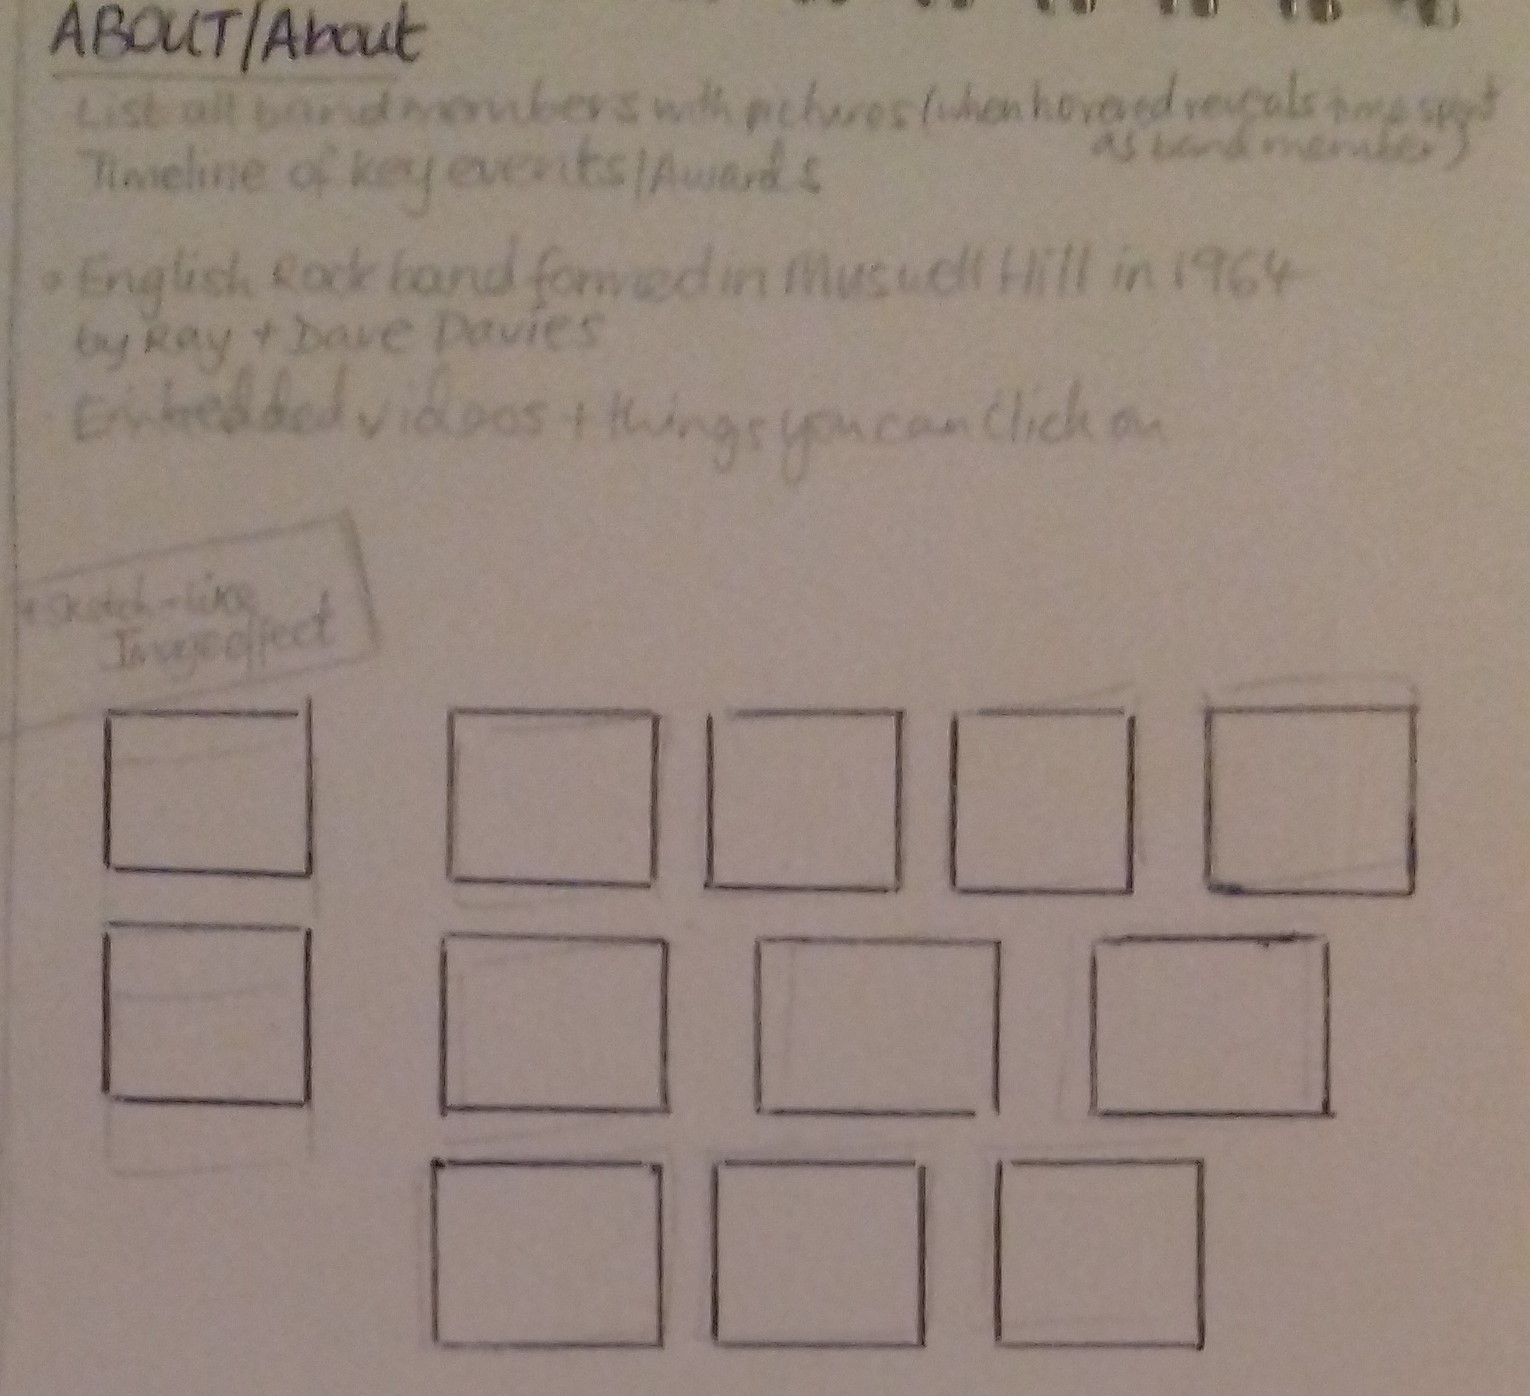 ABOUT/About
List all band members with pictures (when hovered reveals time spent
as band member)
Timeline of key events/Awards
• English Rock band formed in Muswell Hill in 1964
by Ray + Dave Davies
Embedded videos + things you can click on
* Sketch-like
Image effect